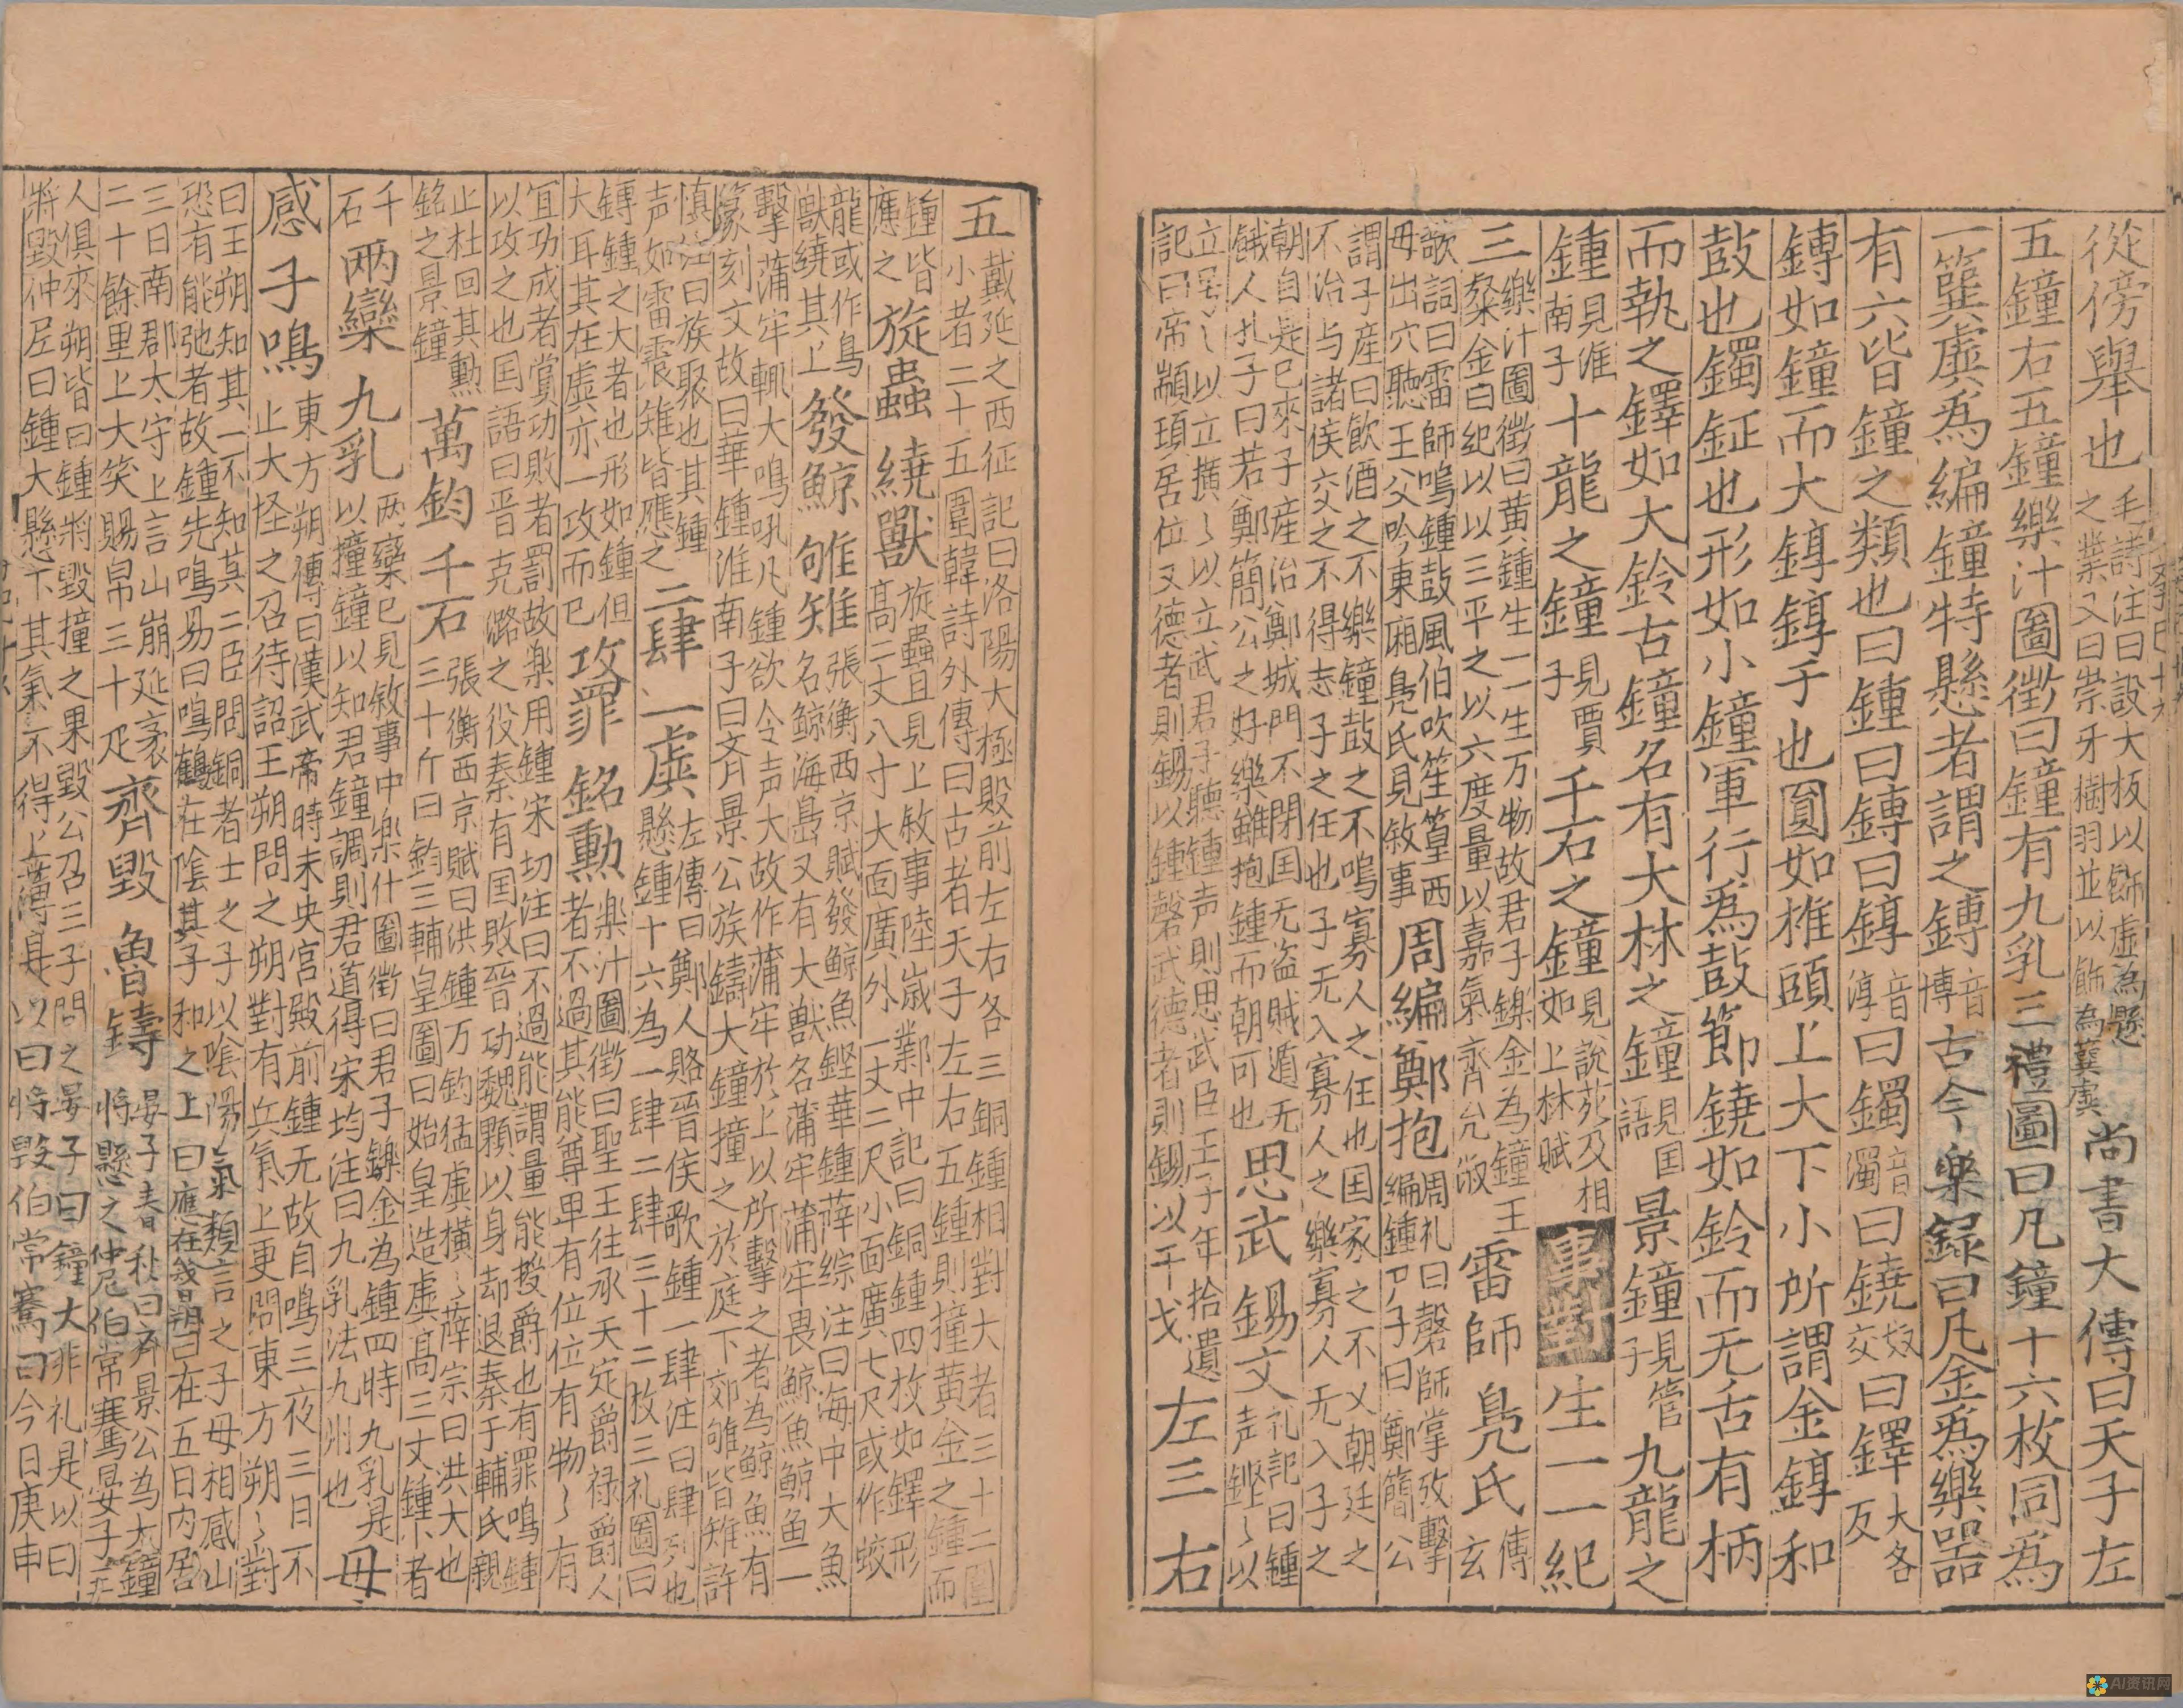 從傍舉也毛詩注曰設大板以飾虡為懸之業又曰崇牙樹羽並以飾為簨虡尚書大傳曰天子左
五鐘右五鐘樂汁圖徵曰鐘有九乳三禮圖曰凡鐘十六枚同爲
一簨虡爲編鐘特懸者謂之鎛音博古今樂録曰凡金爲樂器
有六皆鐘之類也曰鍾曰鎛曰錞音淳曰鐲音濁曰鐃奴交曰鐸大各反
鎛如鐘而大錞錞于也圓如椎頭上大下小所謂金錞和
鼓也鐲鉦也形如小鐘軍行爲鼓節鐃如鈴而无舌有柄
而執之鐸如大鈴古鐘名有大林之鐘見囯語景鐘見管子九龍之
鍾見淮南子十龍之鐘見賈子千石之鐘見說苑及相如上林賦事對生一一紀
三樂汁圖徵曰黄鍾生一一生万物故君子鑠金為鐘王粲金白紀以以三平之以六度量以嘉氣齊允雷師鳧氏傳玄
歌詞曰雷師鳴鍾鼓風伯吹笙篁西母出穴聽王父吟東廂鳧氏見敘事周編鄭抱周礼曰磬師掌攻擊編鍾尸子曰鄭簡公
謂子產曰飲酒之不樂鐘鼓之不鳴寡人之任也囯家之不乂朝廷之
不治与諸侯交之不得志子之任也子无入寡人之樂寡人无入子之
朝自是已來子產治鄭城門不閉囯无盗賊道无餓人孔子曰若鄭簡公之好樂雖抱鍾而朝可也思武錫文礼記曰鍾声鏗〻以
立号〻以立横〻以立武君子聽鍾声則思武臣王子年拾遺記曰帝顓頊居位又德者則錫以鍾磬武德者則錫以干戈左三右
五戴延之西征記曰洛陽大極殿前左右各三銅鍾相對大者三十二圍小者二十五圍韓詩外傳曰古者天子左右五鍾則撞黄金之鍾而
鍾皆應之旋蟲繞獸旋蟲且見上敘事陸歲鄴中記曰銅鍾四枚如鐸形高二丈八寸大面廣外一丈二尺小面廣七尺或作蛟
龍或作鳥獸繞其上發鯨雊雉張衡西京賦發鯨魚鏗華鍾薛綜注曰海中大魚名鯨海島又有大獸名蒲牢蒲牢畏鯨魚鯨魚一
擊蒲牢輒大鳴吼凡鍾欲令声大故作蒲牢於上以所擊之者為鯨魚有
篆刻文故曰華鍾淮南子曰齐景公族鑄大鐘撞之於庭下郊雊皆雉許
慎注曰族聚也其鍾声如雷震雉皆應之二肆一虡左傳曰鄭人賂晉侯歌鍾一肆注曰肆列也懸鍾十六為一肆二肆三十二枚三礼圖曰
鎛鍾之大者也形如鍾但大耳其在虡亦一攻而已攻罪銘勳楽汁圖徵曰聖王往承天定爵禄爵人者不過其能尊卑有位位有物〻有
宜功成者賞功敗者罰故楽用鍾宋切注曰不過能謂量能授爵也有罪鳴鍾
以攻之也囯語曰晋克潞之役秦有囯敗晉功魏顆以身却退秦于輔氏親
止杜回其勲銘之景鐘萬鈞千石張衡西京賦曰洪鍾万鈞猛虡横〻薛宗曰洪大也三十斤曰鈞三輔皇圖曰始皇造虡高三丈鍾卜者
千石两欒九乳两欒已見敘事中楽什圖徵曰君子鑠金為鍾四時九乳是以撞鐘以知君鐘調則君道得宋均注曰九乳法九州也母
感子鳴東方朔傳曰漢武帝時未央宮殿前鍾无故自鳴三夜三日不止大怪之召待詔王朔問之朔對有兵氣上更問東方朔〻對
曰王朔知其一不知其二臣聞銅者士之子以陰陽氣類言之子母相感山
恐有能弛者故鍾先鳴易曰鳴鶴在陰其子和之上曰應在幾日朔曰在五日内居
三日南郡太守上言山崩延袤二十餘里上大笑賜帛三十疋齊毀魯鑄晏子春秋曰齐景公為大鐘將懸之仲尼伯常騫晏子三
人俱來朔皆曰鍾將毀撞之果毀公召三子問之晏子曰鐘大非礼是以曰
將毀仲尼曰鍾大懸下其氣不得上薄是以曰將毀伯常騫曰今日庚申
AI资讯网